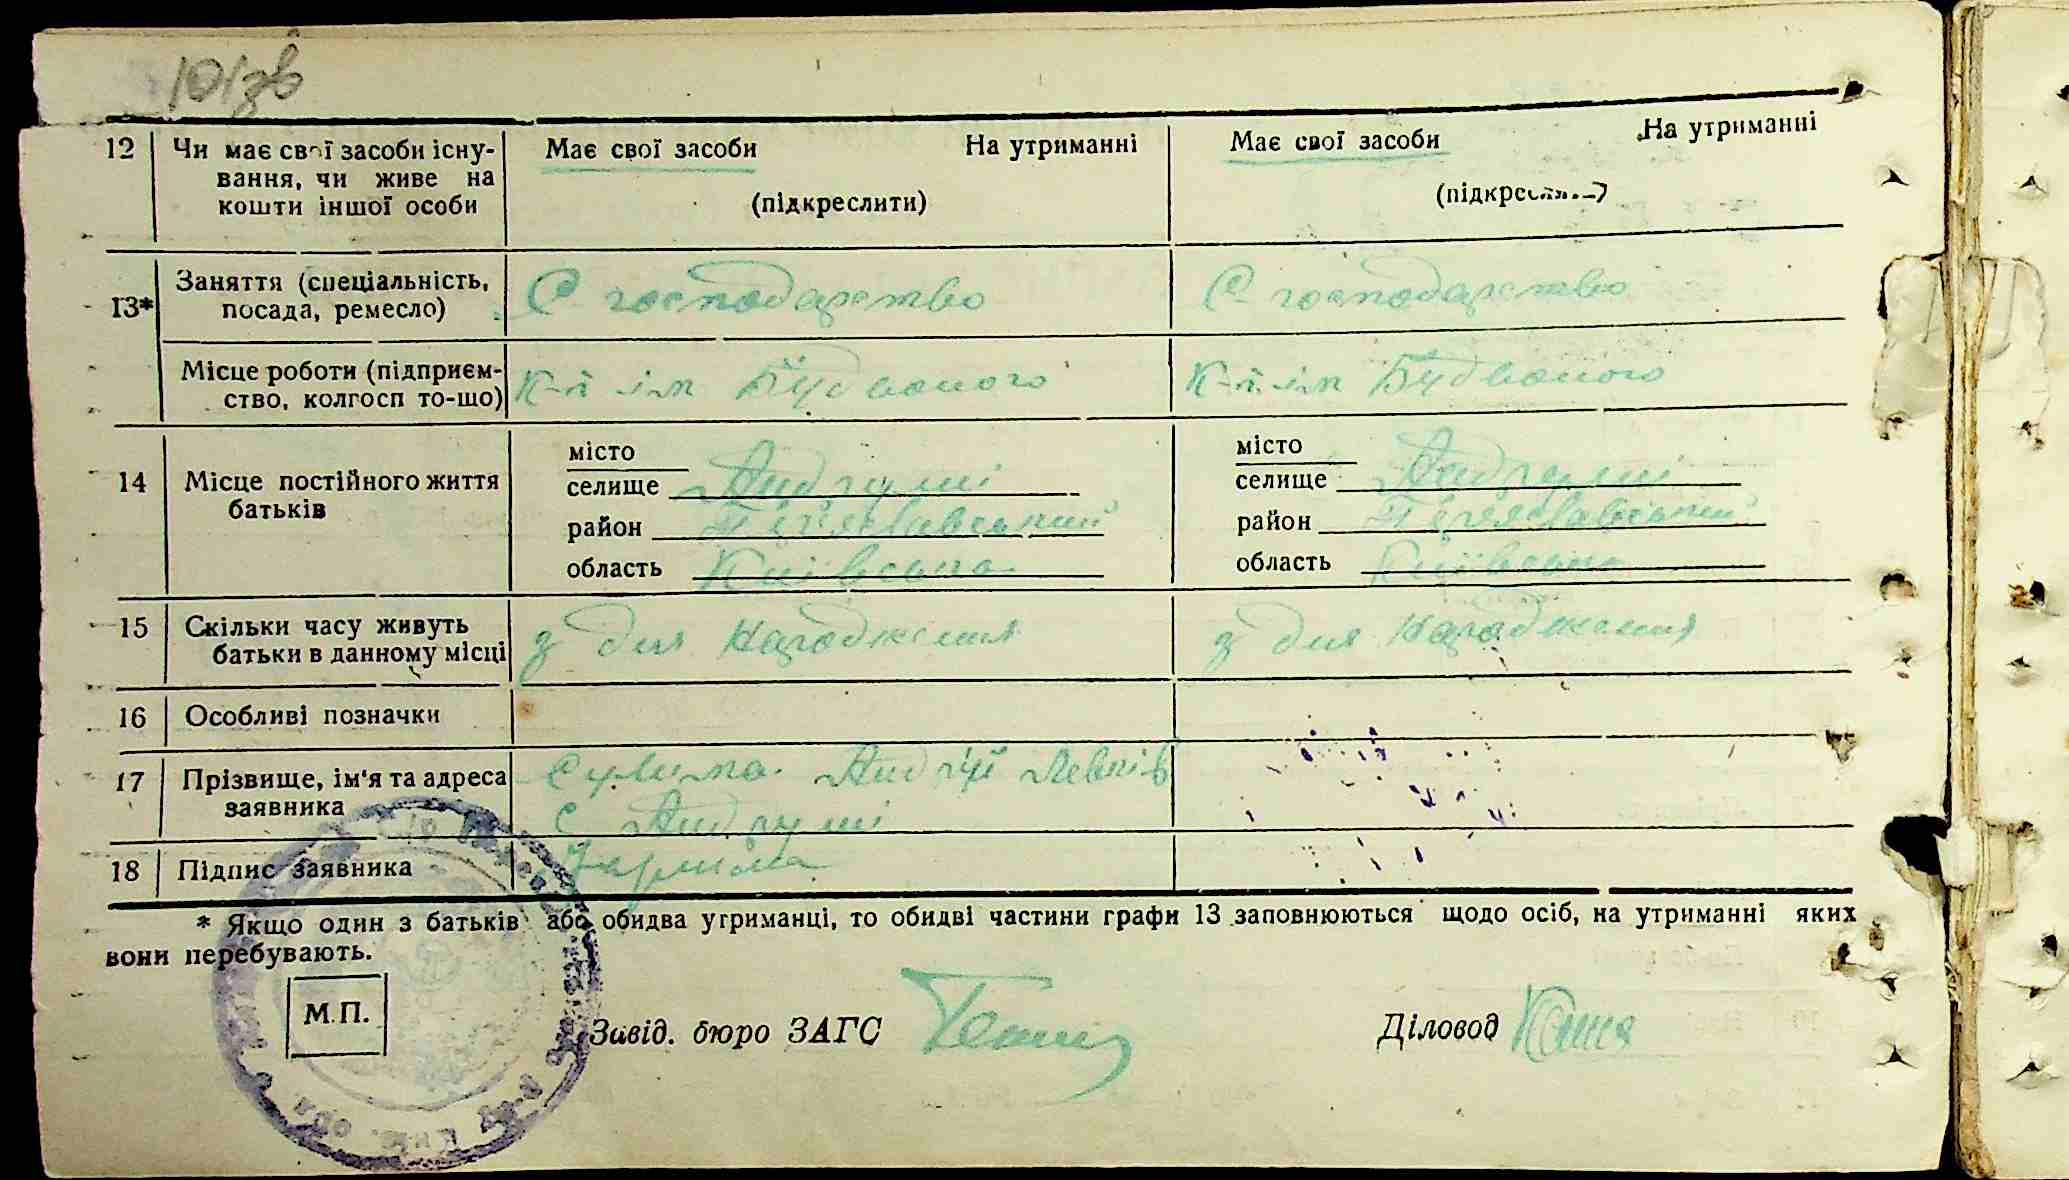 101зв
12 Чи має свої засоби існу- Має свої засоби На утриманні Має свої засоби На утриманні
вання, чи живе на
кошти іншої особи (підкреслити) (підкреслити)
13* Заняття (спеціальність, С господарство С господарство
посада, ремесло)
Місце роботи (підприєм- К-п ім Будьоного К-п ім Будьоного
ство, колгосп то-що)
місто місто
14 Місце постійного життя селище Андруші селище Андруші
батьків район Переяславський район Переяславський
область Київська область Київська
15 Скільки часу живуть з дня народження з дня народження
батьки в данному місці
16 Особливі позначки
17 Прізвище, ім'я та адреса Сулима Андрій
заявника с Андруші
18 Підпис заявника
* Якщо один з батьків або обидва утриманці, то обидві частини графи 13 заповнюються щодо осіб, на утриманні яких
вони перебувають.
М.П.
Завід. бюро ЗАГС Діловод